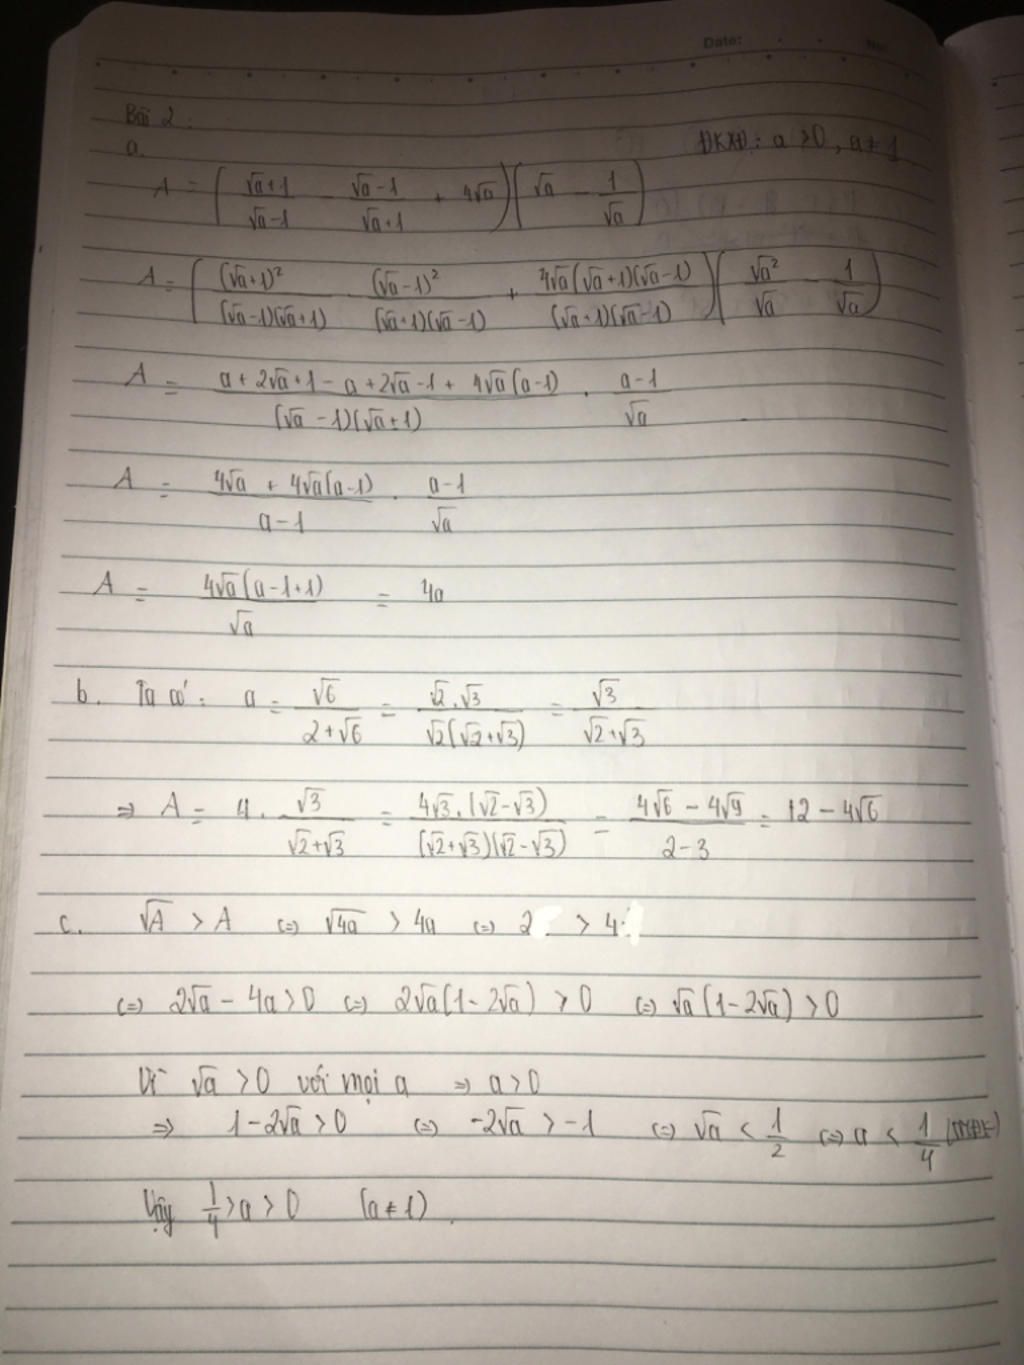 Date:
No:
Bài 2.
a. ĐKXĐ: a > 0, a ≠ 1
A = ( (√a+1)/(√a-1) - (√a-1)/(√a+1) + 4√a ) ( √a - 1/√a )
A = ( (√a+1)²/((√a-1)(√a+1)) - (√a-1)²/((√a+1)(√a-1)) + 4√a(√a+1)(√a-1)/((√a+1)(√a-1)) ) ( √a²/√a - 1/√a )
A = (a + 2√a + 1 - a + 2√a - 1 + 4√a(a-1))/((√a-1)(√a+1)) . (a-1)/√a
A = (4√a + 4√a(a-1))/(a-1) . (a-1)/√a
A = 4√a(a-1+1)/√a = 4a
b. Ta có: a = √6/(2+√6) = √2.√3/(√2(√2+√3)) = √3/(√2+√3)
=> A = 4. √3/(√2+√3) = 4√3.(√2-√3)/((√2+√3)(√2-√3)) = (4√6 - 4√9)/(2-3) = 12 - 4√6
c. √A > A (=) √4a > 4a (=) 2 > 4
(=) 2√a - 4a > 0 (=) 2√a(1-2√a) > 0 (=) √a(1-2√a) > 0
Vì √a > 0 với mọi a => a > 0
=> 1-2√a > 0 (=) -2√a > -1 (=) √a < 1/2 (=) a < 1/4
Vậy 1/4 > a > 0 (a ≠ 1).